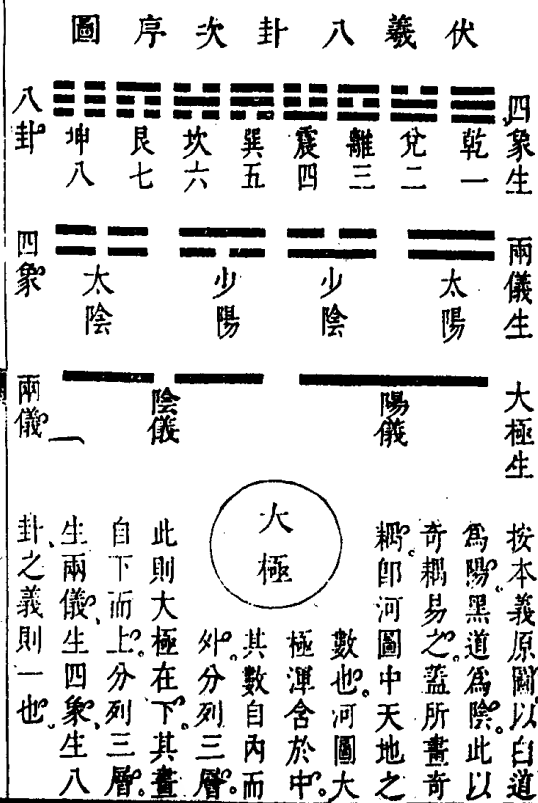 伏羲八卦次序圖
四象生
乾一
兌二
離三
震四
巽五
坎六
艮七
坤八
八卦
兩儀生
太陽
少陰
少陽
太陰
四象
大極生
陽儀
陰儀
兩儀
大極
按本義原圖以白道
爲陽。黑道爲陰。此以
奇耦易之。蓋所畫奇
耦。卽河圖中天地之
數也。河圖大
極渾含於中。
其數自內而
外。分列三層。
此則大極在下。其畫
自下而上。分列三層。
生兩儀、生四象、生八
卦、之義則一也。